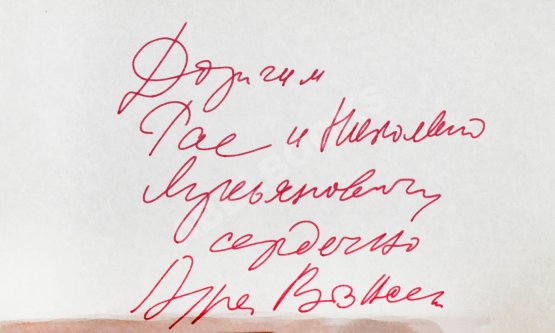 Дорогим
Тае и Николаю
Лукьяновичу
сердечно
Андрей Вознесен